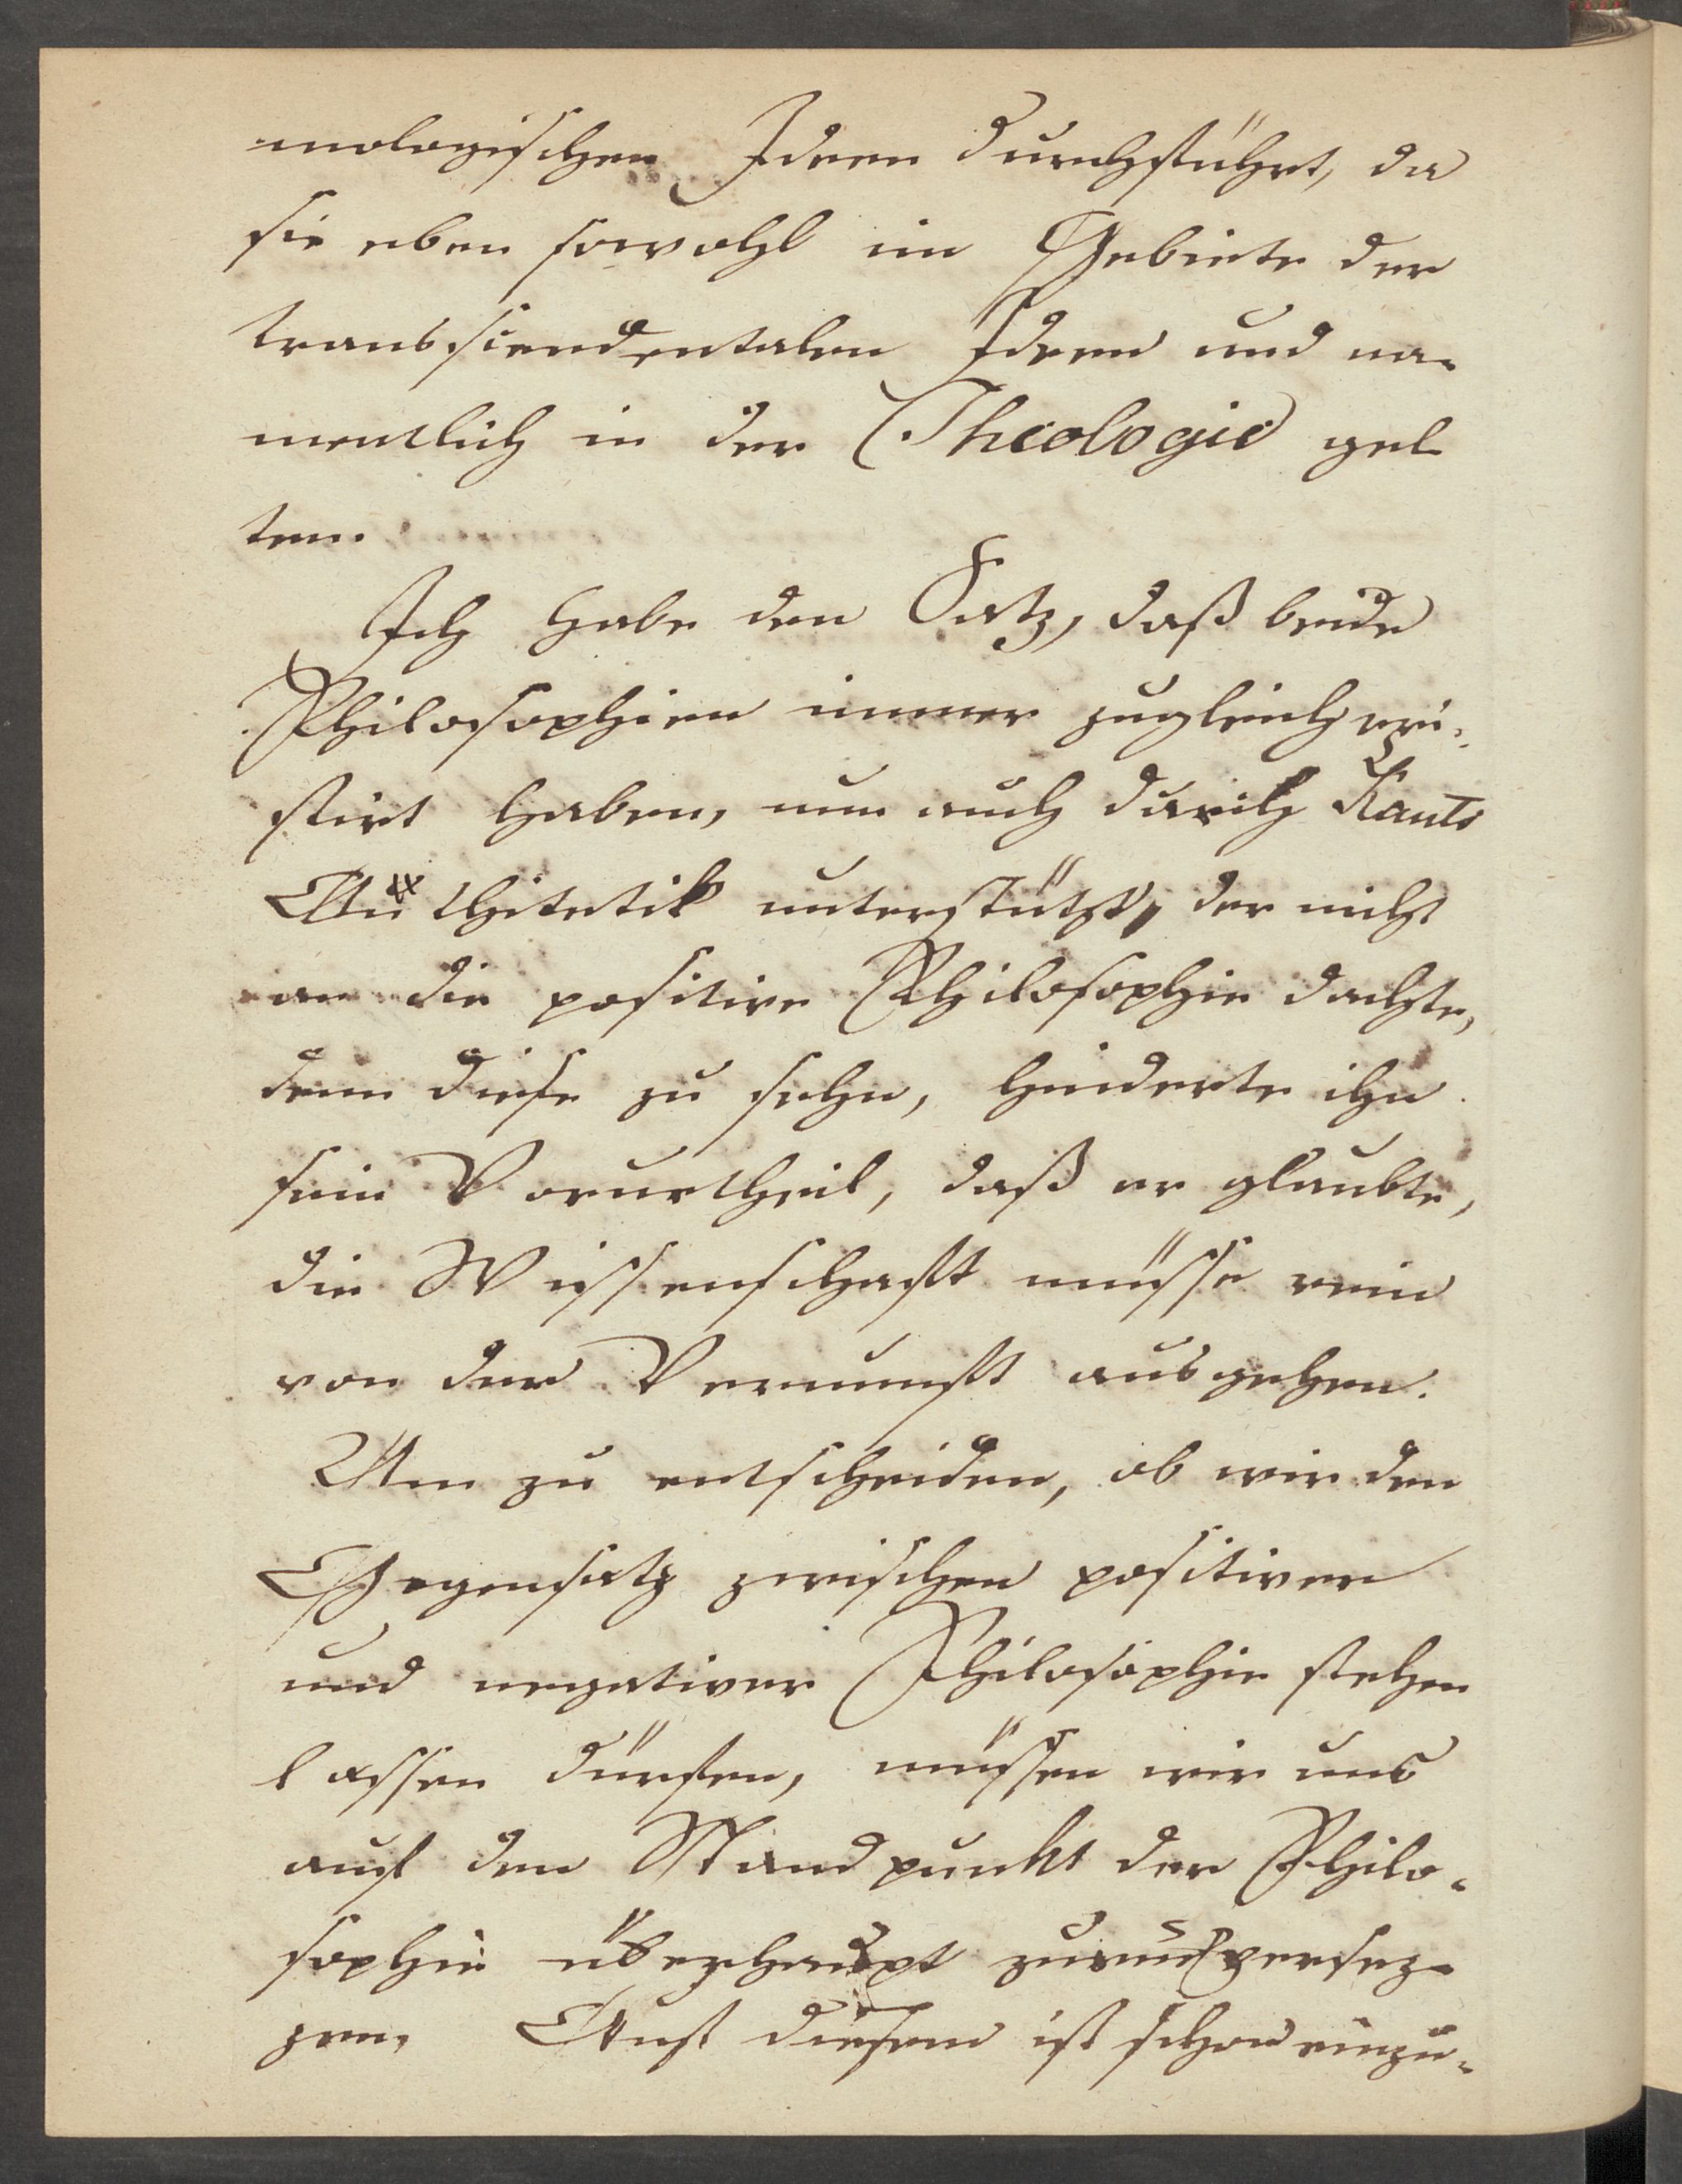 mologischen Ideen durchführt, da
sie eben sowohl im Gebiete der
transsiendentalen Ideen und na-
mentlich in der Theologie gel
ten.
Ich habe den Satz, daß beide
Philosophien immer zugleich exi-
stirt haben, nun auch durch Kants
Antithetik unterstützt, der nicht
an die positive Philosophie dachte,
denn diese zu sehn, hinderte ihn
sein Vorurtheil, daß er glaubte,
die Wissenschaft müsse rein
von der Vernunft ausgehen.
Um zu entscheiden, ob wir den
Gegensatz zwischen positiver
und negativer Philosophie stehen
lassen dürfen, müssen wir uns
auf den Standpunkt der Philo-
sophie überhaupt zurückversez-
zen. Auf diesem ist schon einzu-